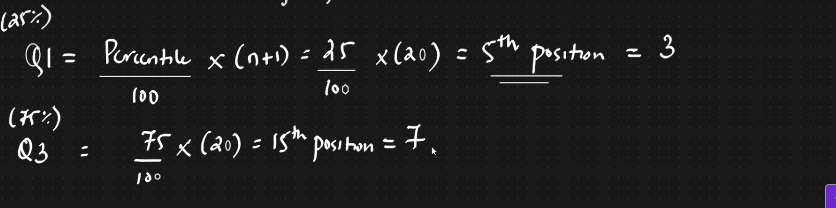 (25%)
Q1 = Percentile/100 × (n+1) = 25/100 × (20) = 5th position = 3
(75%)
Q3 = 75/100 × (20) = 15th position = 7.